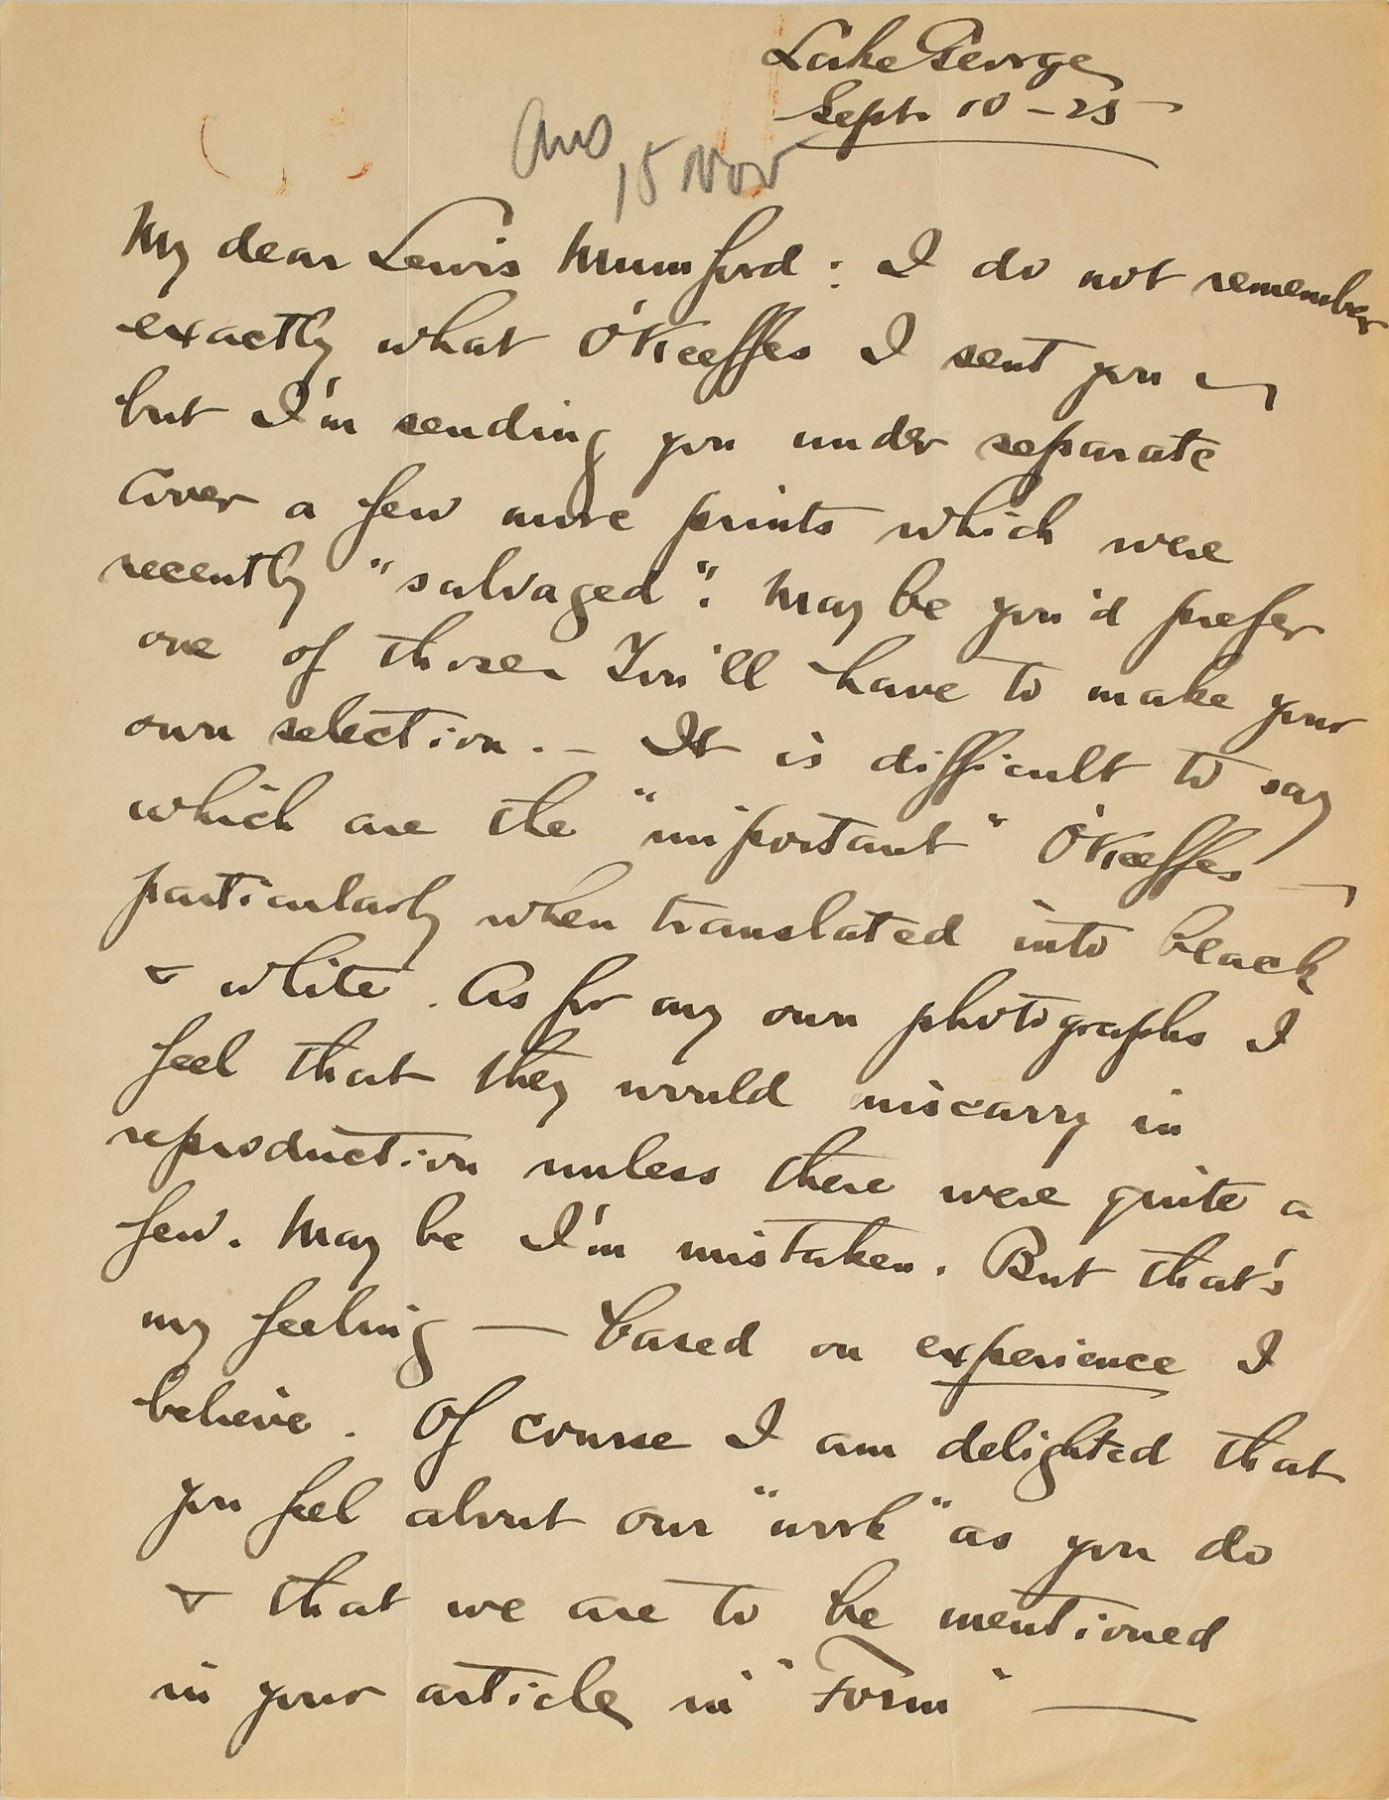 Lake George
Sept. 10 – 25 –
Ans
15 Nov
My dear Lewis Mumford: I do not remember
exactly what O'Keeffes I sent you –
but I'm sending you under separate
cover a few more prints which were
recently "salvaged". May be you'd prefer
one of those. You'll have to make your
own selection. – It is difficult to say
which are the "important" O'Keeffes –
particularly when translated into black
& white. As for my own photographs I
feel that they would miscarry in
reproduction unless there were quite a
few. May be I'm mistaken. But that's
my feeling — based on experience I
believe. Of course I am delighted that
you feel about our "work" as you do
& that we are to be mentioned
in your article in "Form" —